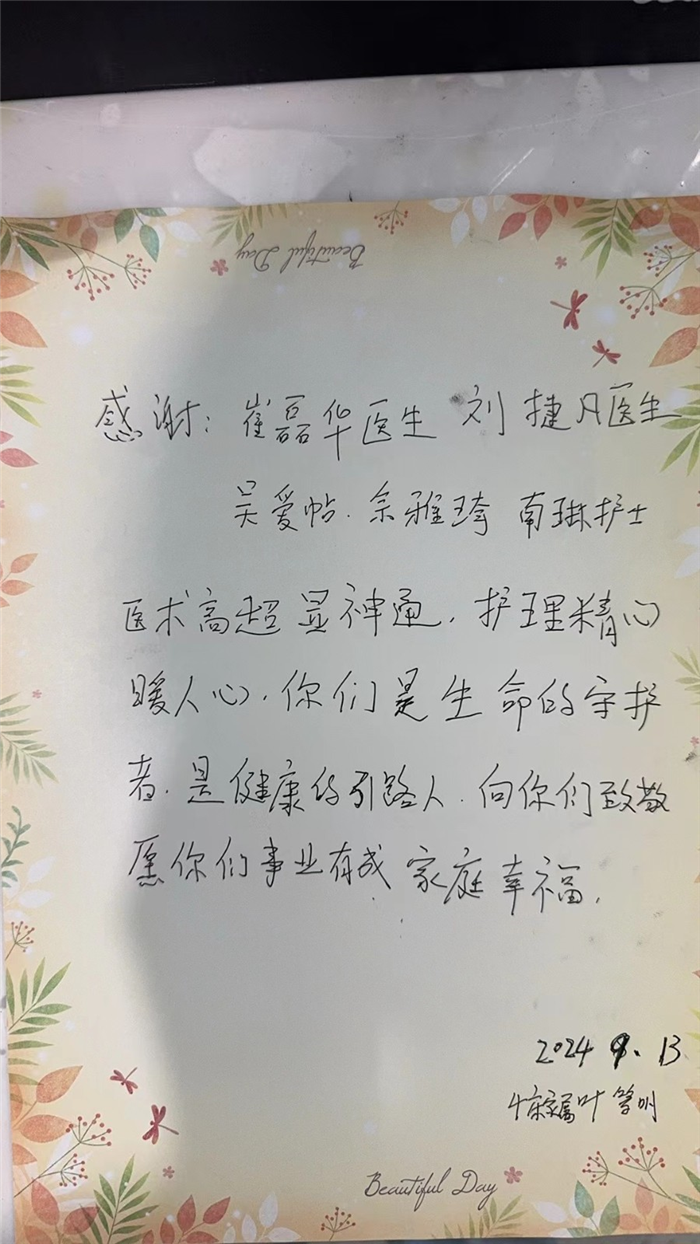 Beautiful Day
感谢：崔磊华医生 刘捷凡医生
吴爱帖.余雅琦 南琳护士
医术高超显神通，护理精心
暖人心，你们是生命的守护
者.是健康的引路人.向你们致敬
愿你们事业有成 家庭幸福，
2024 9. 13
家属叶
Beautiful Day